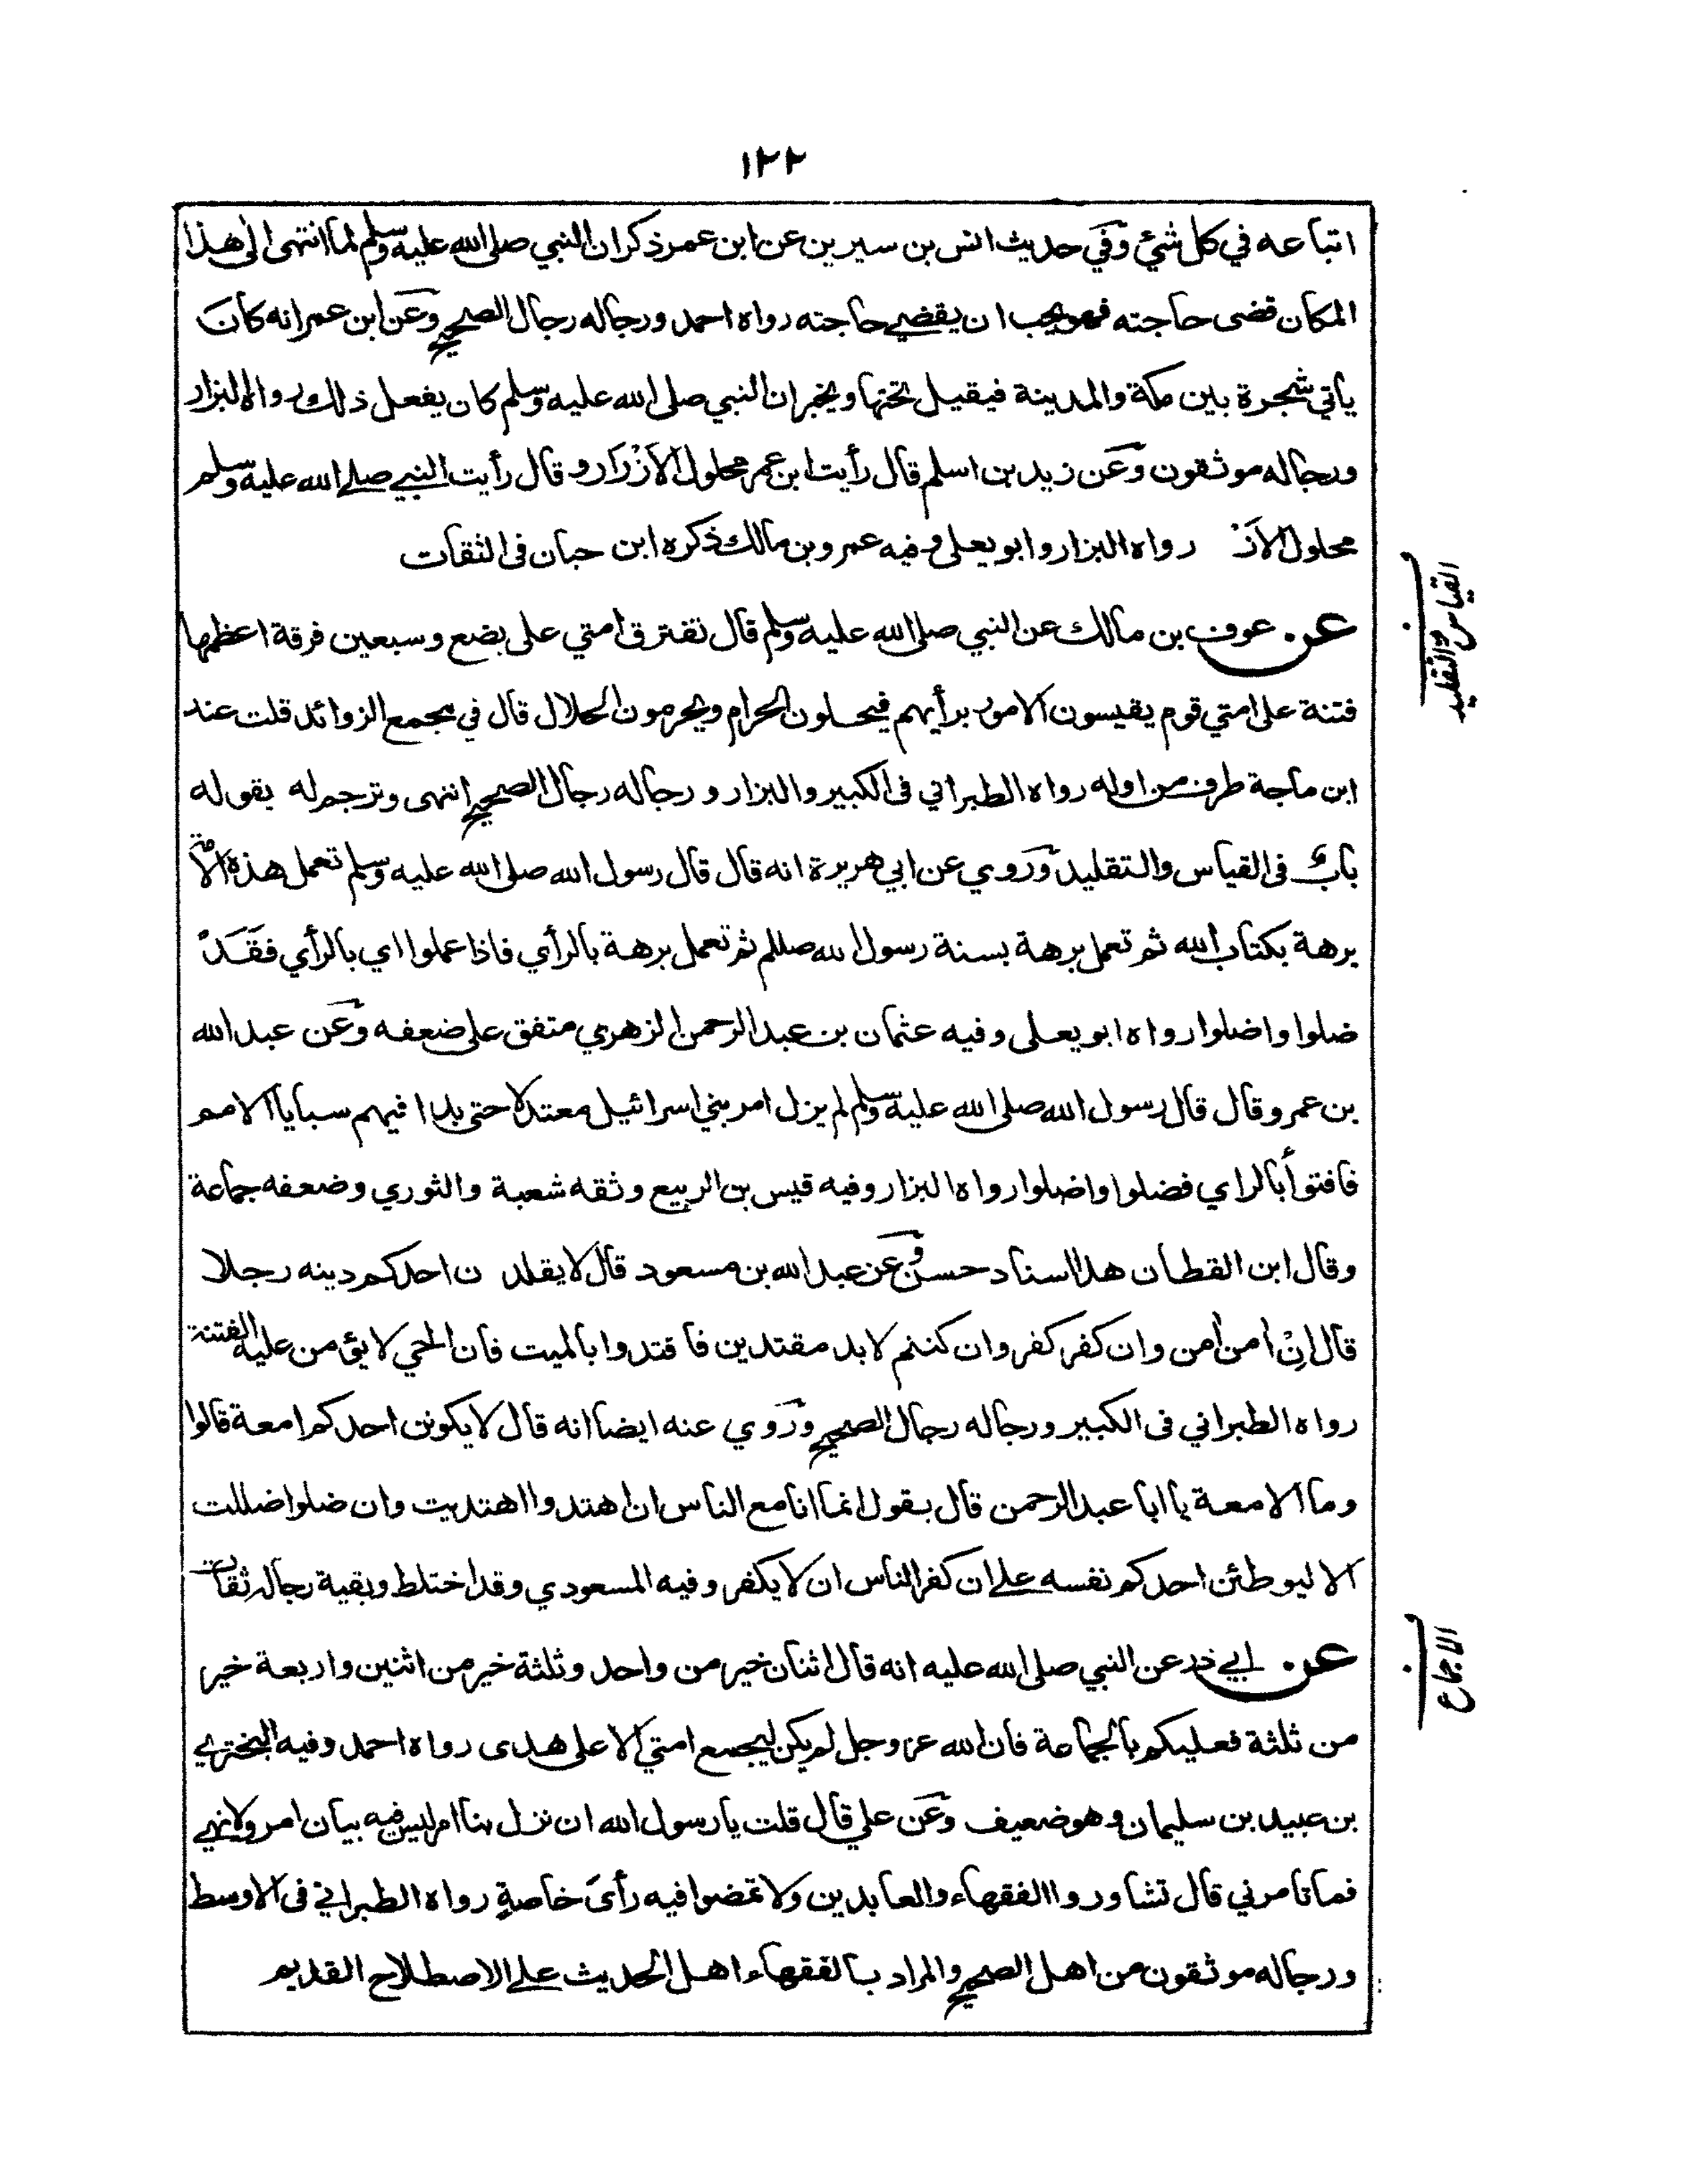 ١٢٢
اتباعه في كل شئ وفي حديث انس بن سيرين عن ابن عمر ذكر ان النبي صلى الله عليه وسلم لما انتهى الى هذا
المكان قضى حاجته فهو يحب ان يقضي حاجته رواه احمد ورجاله رجال الصحيح وعن ابن عمر انه كان
ياتي شجرة بين مكة والمدينة فيقيل تحتها ويخبر ان النبي صلى الله عليه وسلم كان يفعل ذلك رواه البزار
ورجاله موثقون وعن زيد بن اسلم قال رأيت ابن عمر محلول الأزرار و قال رأيت النبي صلى الله عليه وسلم
محلول الاز رواه البزار وابو يعلى وفيه عمرو بن مالك ذكره ابن حبان في الثقات
عن عوف بن مالك عن النبي صلى الله عليه وسلم قال تفترق امتي على بضع وسبعين فرقة اعظمها
القياس والتقليد
فتنة على امتي قوم يقيسون الامور برأيهم فيحلون الحرام ويحرمون الحلال قال في مجمع الزوائد قلت عند
ابن ماجة طرف من اوله رواه الطبراني في الكبير والبزار ورجاله رجال الصحيح انتهى وترجم له بقوله
باب في القياس والتقليد وروي عن ابي هريرة انه قال قال رسول الله صلى الله عليه وسلم تعمل هذه الامة
برهة بكتاب الله ثم تعمل برهة بسنة رسول الله صللم ثم تعمل برهة بالرأي فاذا عملوا اي بالرأي فقد
ضلوا واضلوا رواه ابو يعلى وفيه عثمان بن عبد الرحمن الزهري متفق على ضعفه وعن عبد الله
بن عمرو قال قال رسول الله صلى الله عليه وسلم لم يزل امر بني اسرائيل معتدلا حتى بدا فيهم سبايا الامم
فافتوا بالراي فضلوا واضلوا رواه البزار وفيه قيس بن الربيع وثقه شعبة والثوري وضعفه جماعة
وقال ابن القطان هذا اسناد حسن وعن عبد الله بن مسعود قال لا يقلد ن احدكم دينه رجلا
قال إن امن امن وان كفر كفر وان كنتم لا بد مقتدين فاقتدوا بالميت فان الحي لا يؤمن عليه الفتنة
رواه الطبراني في الكبير ورجاله رجال الصحيح وروي عنه ايضا انه قال لا يكونن احدكم امعة قالوا
وما الامعة يا ابا عبد الرحمن قال يقول انما انا مع الناس ان اهتدوا اهتديت وان ضلوا ضللت
الا ليوطئن احدكم نفسه على ان كفر الناس ان لا يكفر وفيه المسعودي وقد اختلط وبقية رجاله ثقات
عن ابي ذر عن النبي صلى الله عليه انه قال اثنان خير من واحد وثلثة خير من اثنين واربعة خير
الاجماع
من ثلثة فعليكم بالجماعة فان الله عز وجل لم يكن ليجمع امتي الا على هدى رواه احمد وفيه البختري
بن عبيد بن سليمان وهو ضعيف وعن علي قال قلت يا رسول الله ان نزل بنا امر ليس فيه بيان امر ولا نهي
فما تامرني قال تشاوروا الفقهاء والعابدين ولا تمضوا فيه رأي خاصة رواه الطبراني في الاوسط
ورجاله موثقون من اهل الصحيح والمراد بالفقهاء اهل الحديث على الاصطلاح القديم